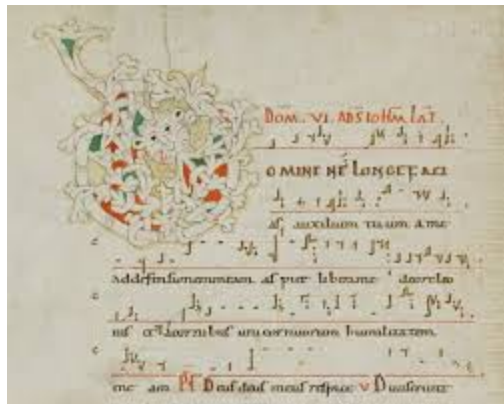 DOM. VI. AD S IOHM LAT.
OMINE NE LONGE FACI
as auxilium tuum a me
ad defensionem meam aspice libera me de ore leo
nis et a cornibus unicornuorum humilitatem
me am PS Deus deus meus respice V Diviserunt